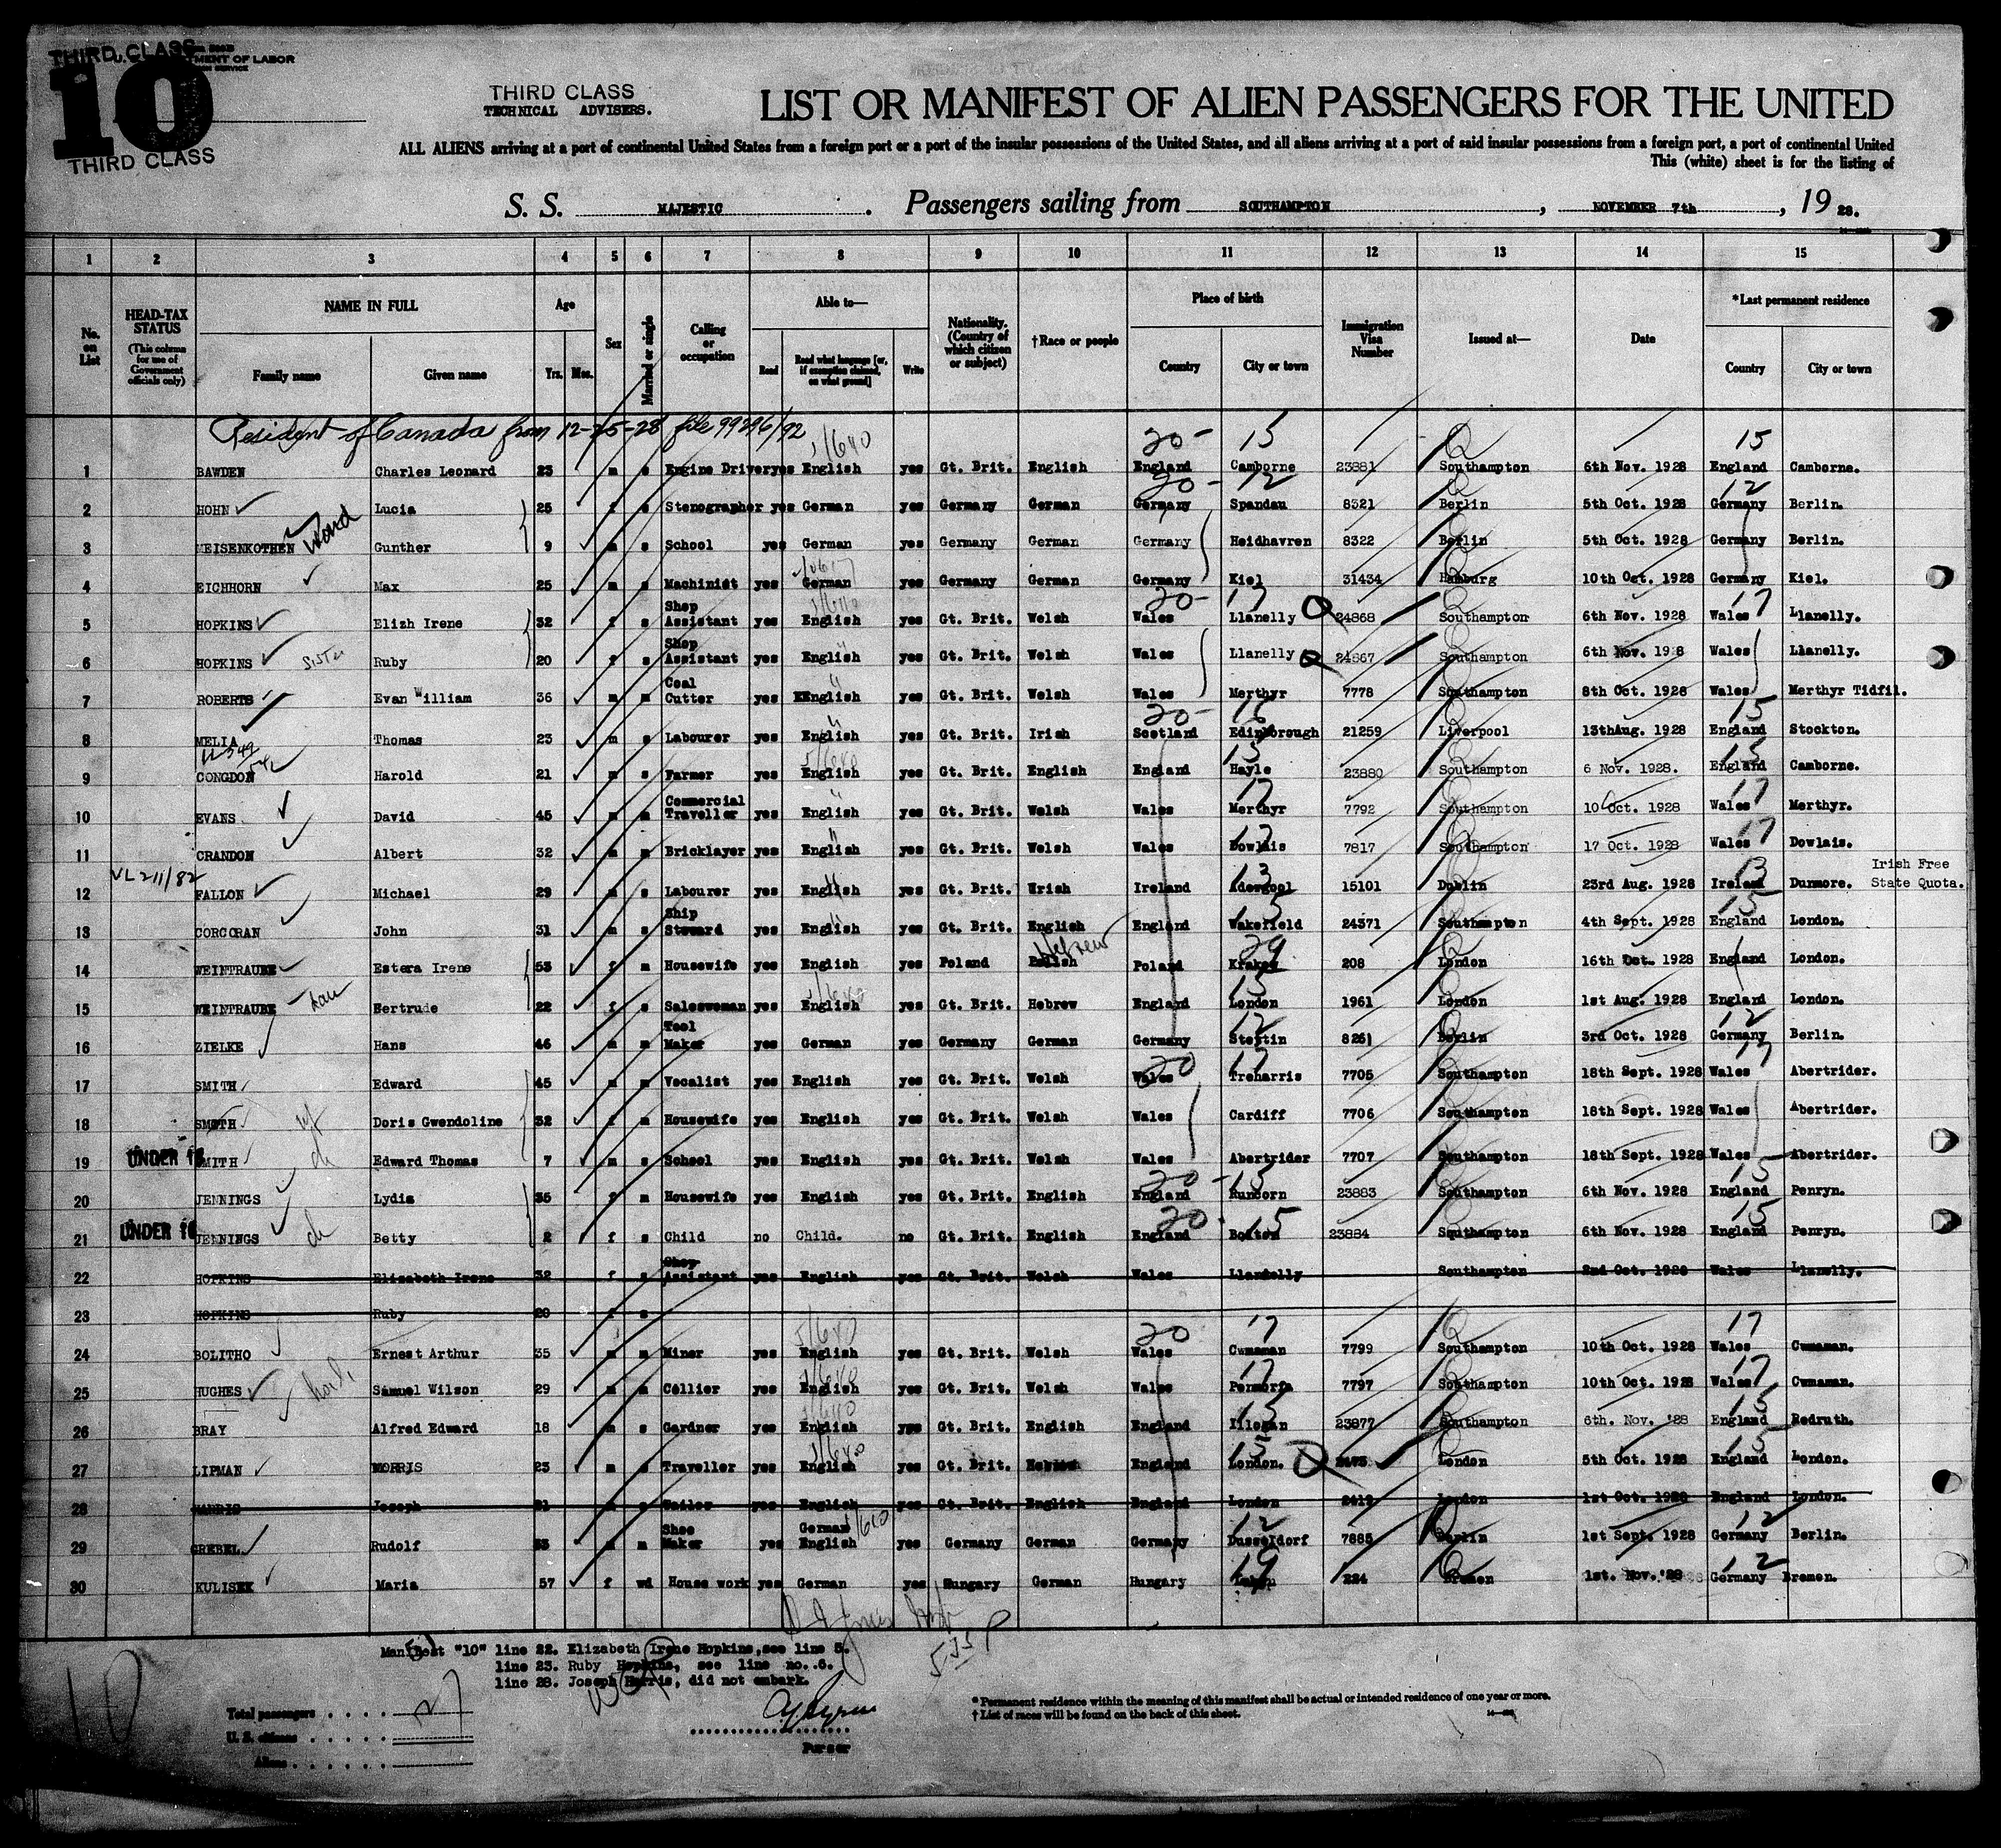 THIRD CLASS
10
THIRD CLASS
MENT OF LABOR
THIRD CLASS
TECHNICAL ADVISERS.
LIST OR MANIFEST OF ALIEN PASSENGERS FOR THE UNITED
ALL ALIENS arriving at a port of continental United States from a foreign port or a port of the insular possessions of the United States, and all aliens arriving at a port of said insular possessions from a foreign port, a port of continental United
This (white) sheet is for the listing of
S. S. MAJESTIC. Passengers sailing from SOUTHAMPTON, NOVEMBER 7th, 19 28.
1 2 3 4 5 6 7 8 9 10 11 12 13 14 15
No. on List
HEAD-TAX STATUS (This column for use of Government officials only)
NAME IN FULL Family name Given name
Age Yrs. Mos.
Sex
Married or single
Calling or occupation
Able to— Read Read what language [or, if exemption claimed, on what ground] Write
Nationality. (Country of which citizen or subject)
†Race or people
Place of birth Country City or town
Immigration Visa Number
Issued at—
Date
*Last permanent residence Country City or town
Resident of Canada from 12-25-28 file 99296/92
1 BAWDEN Charles Leonard 23 m s Engine Driver yes English yes Gt. Brit. English England Camborne 23881 Southampton 6th Nov. 1928 England Camborne.
2 HOHN Lucia 25 f s Stenographer yes German yes Germany German Germany Spandau 8321 Berlin 5th Oct. 1928 Germany Berlin.
3 MEISENKOTHEN Gunther 9 m s School yes German yes Germany German Germany Heidhavren 8322 Berlin 5th Oct. 1928 Germany Berlin.
4 EICHHORN Max 25 m s Machinist yes German yes Germany German Germany Kiel 31434 Hamburg 10th Oct. 1928 Germany Kiel.
5 HOPKINS Elizh Irene 32 f s Shop Assistant yes English yes Gt. Brit. Welsh Wales Llanelly 24868 Southampton 6th Nov. 1928 Wales Llanelly.
6 HOPKINS sister Ruby 20 f s Shop Assistant yes English yes Gt. Brit. Welsh Wales Llanelly 24867 Southampton 6th Nov. 1928 Wales Llanelly.
7 ROBERTS Evan William 36 m m Coal Cutter yes English yes Gt. Brit. Welsh Wales Merthyr 7778 Southampton 8th Oct. 1928 Wales Merthyr Tidfil.
8 MELIA Thomas 23 m s Labourer yes English yes Gt. Brit. Irish Scotland Edinborough 21259 Liverpool 13thAug. 1928 England Stockton.
9 CONGDON Harold 21 m s Farmer yes English yes Gt. Brit. English England Hayle 23880 Southampton 6 Nov. 1928. England Camborne.
10 EVANS David 45 m m Commercial Traveller yes English yes Gt. Brit. Welsh Wales Merthyr 7792 Southampton 10 Oct. 1928 Wales Merthyr.
11 CRANDON Albert 32 m m Bricklayer yes English yes Gt. Brit. Welsh Wales Dowlais 7817 Southampton 17 Oct. 1928 Wales Dowlais.
VL 211/82
12 FALLON Michael 29 m s Labourer yes English yes Gt. Brit. Urish Ireland Adergool 15101 Dublin 23rd Aug. 1928 Ireland Dunmore. Irish Free State Quota.
13 CORCORAN John 31 m s Ship Steward yes English yes Gt. Brit. English England Wakefield 24371 Southampton 4th Sept. 1928 England London.
14 WEINTRAUBE Estera Irene 53 f m Housewife yes English yes Poland Hebrew Poland Krakow 208 London 16th Oct. 1928 England London.
15 WEINTRAUBE dau Gertrude 22 f s Saleswoman yes English yes Gt. Brit. Hebrew England London 1961 London 1st Aug. 1928 England London.
16 ZIELKE Hans 46 m m Tool Maker yes German yes Germany German Germany Stettin 8261 Berlin 3rd Oct. 1928 Germany Berlin.
17 SMITH Edward 45 m m Vocalist yes English yes Gt. Brit. Welsh Wales Treharris 7705 Southampton 18th Sept. 1928 Wales Abertrider.
18 SMITH Doris Gwendoline 32 f m Housewife yes English yes Gt. Brit. Welsh Wales Cardiff 7706 Southampton 18th Sept. 1928 Wales Abertrider.
19 UNDER 16 SMITH Edward Thomas 7 m s School yes English yes Gt. Brit. Welsh Wales Abertrider 7707 Southampton 18th Sept. 1928 Wales Abertrider.
20 JENNINGS Lydia 35 f m Housewife yes English yes Gt. Brit. English England Runcorn 23883 Southampton 6th Nov. 1928 England Penryn.
21 UNDER 16 JENNINGS Betty 2 f s Child no Child. no Gt. Brit. English England Bolton 23884 Southampton 6th Nov. 1928 England Penryn.
22 HOPKINS Elizabeth Irene 32 f s Shop Assistant yes English yes Gt. Brit. Welsh Wales Llandelly Southampton 2nd Oct. 1928 Wales Llanelly.
23 HOPKINS Ruby 20 f s
24 BOLITHO Ernest Arthur 35 m m Miner yes English yes Gt. Brit. Welsh Wales Cwmaman 7799 Southampton 10th Oct. 1928 Wales Cwmaman.
25 HUGHES Samuel Wilson 29 m m Collier yes English yes Gt. Brit. Welsh Wales 7797 Southampton 10th Oct. 1928 Wales Cwmaman.
26 BRAY Alfred Edward 18 m s Gardner yes English yes Gt. Brit. English England Illogan 23877 Southampton 6th. Nov. '28 England Redruth.
27 LIPMAN MORRIS 23 m s Traveller yes English yes Gt. Brit. England London. London 5th Oct. 1928 England London.
28 HARRIS Joseph 21 m s yes English yes Gt. Brit. English England London London 1st Oct. 1928 England London.
29 GREBEL Rudolf 33 m m Shoe Maker yes German English yes Germany German Germany Dusseldorf 7885 Berlin 1st Sept. 1928 Germany Berlin.
30 KULISEK Maria 57 f wd House work yes German yes Hungary German Hungary 224 Bremen 1st. Nov. '28 Germany Bremen.
Manifest "10" line 22. Elizabeth Irene Hopkins, see line 5.
line 23. Ruby Hopkins, see line no. 6.
line 28. Joseph Harris, did not embark.
Total passengers 27
U. S. citizens
Aliens
Purser
* Permanent residence within the meaning of this manifest shall be actual or intended residence of one year or more.
† List of races will be found on the back of this sheet.